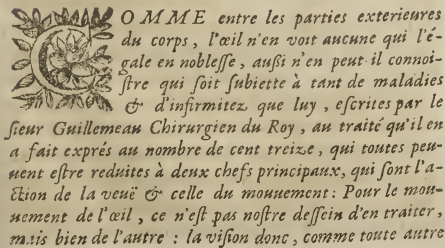 COMME entre les parties exterieures
du corps, l'œil n'en voit aucune qui l'é-
gale en noblesse, außi n'en peut-il connoi-
ſtre qui ſoit ſubiette à tant de maladies
& d'infirmitez que luy, eſcrites par le
ſieur Guillemeau Chirurgien du Roy, au traité qu'il en
a fait exprés au nombre de cent treize, qui toutes peu-
uent eſtre reduites à deux chefs principaux, qui ſont l'a-
ction de la veuë & celle du mouuement: Pour le mou-
uement de l'œil, ce n'eſt pas noſtre deſſein d'en traiter,
mais bien de l'autre: la viſion donc, comme toute autre